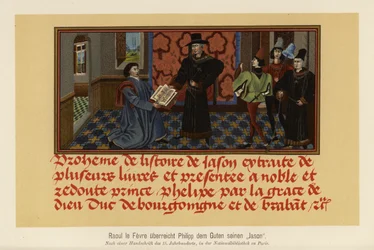 Proheme de listoire de Jason extraite de
pluseurs livres et presentee a noble et
redoute prince phelipe par la grace de
dieu Duc de bourgoingne et de brabāt
Raoul le Fèvre überreicht Philipp dem Guten seinen „Jason“.
Nach einer Handschrift des 15. Jahrhunderts, in der Nationalbibliothek zu Paris.